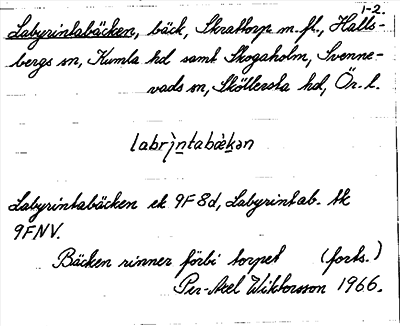 1-2.
Labyrintabäcken, bäck, Skrattorp m.fl., Halls-
bergs sn, Kumla hd samt Skogaholm, Svenne-
vads sn, Sköllersta hd, Ör. l.
labrìntabæ̀kən
Labyrintabäcken ek 9F 8d, Labyrintab. tk
9F NV.
Bäcken rinner förbi torpet (forts.)
Per-Axel Wiktorsson 1966.